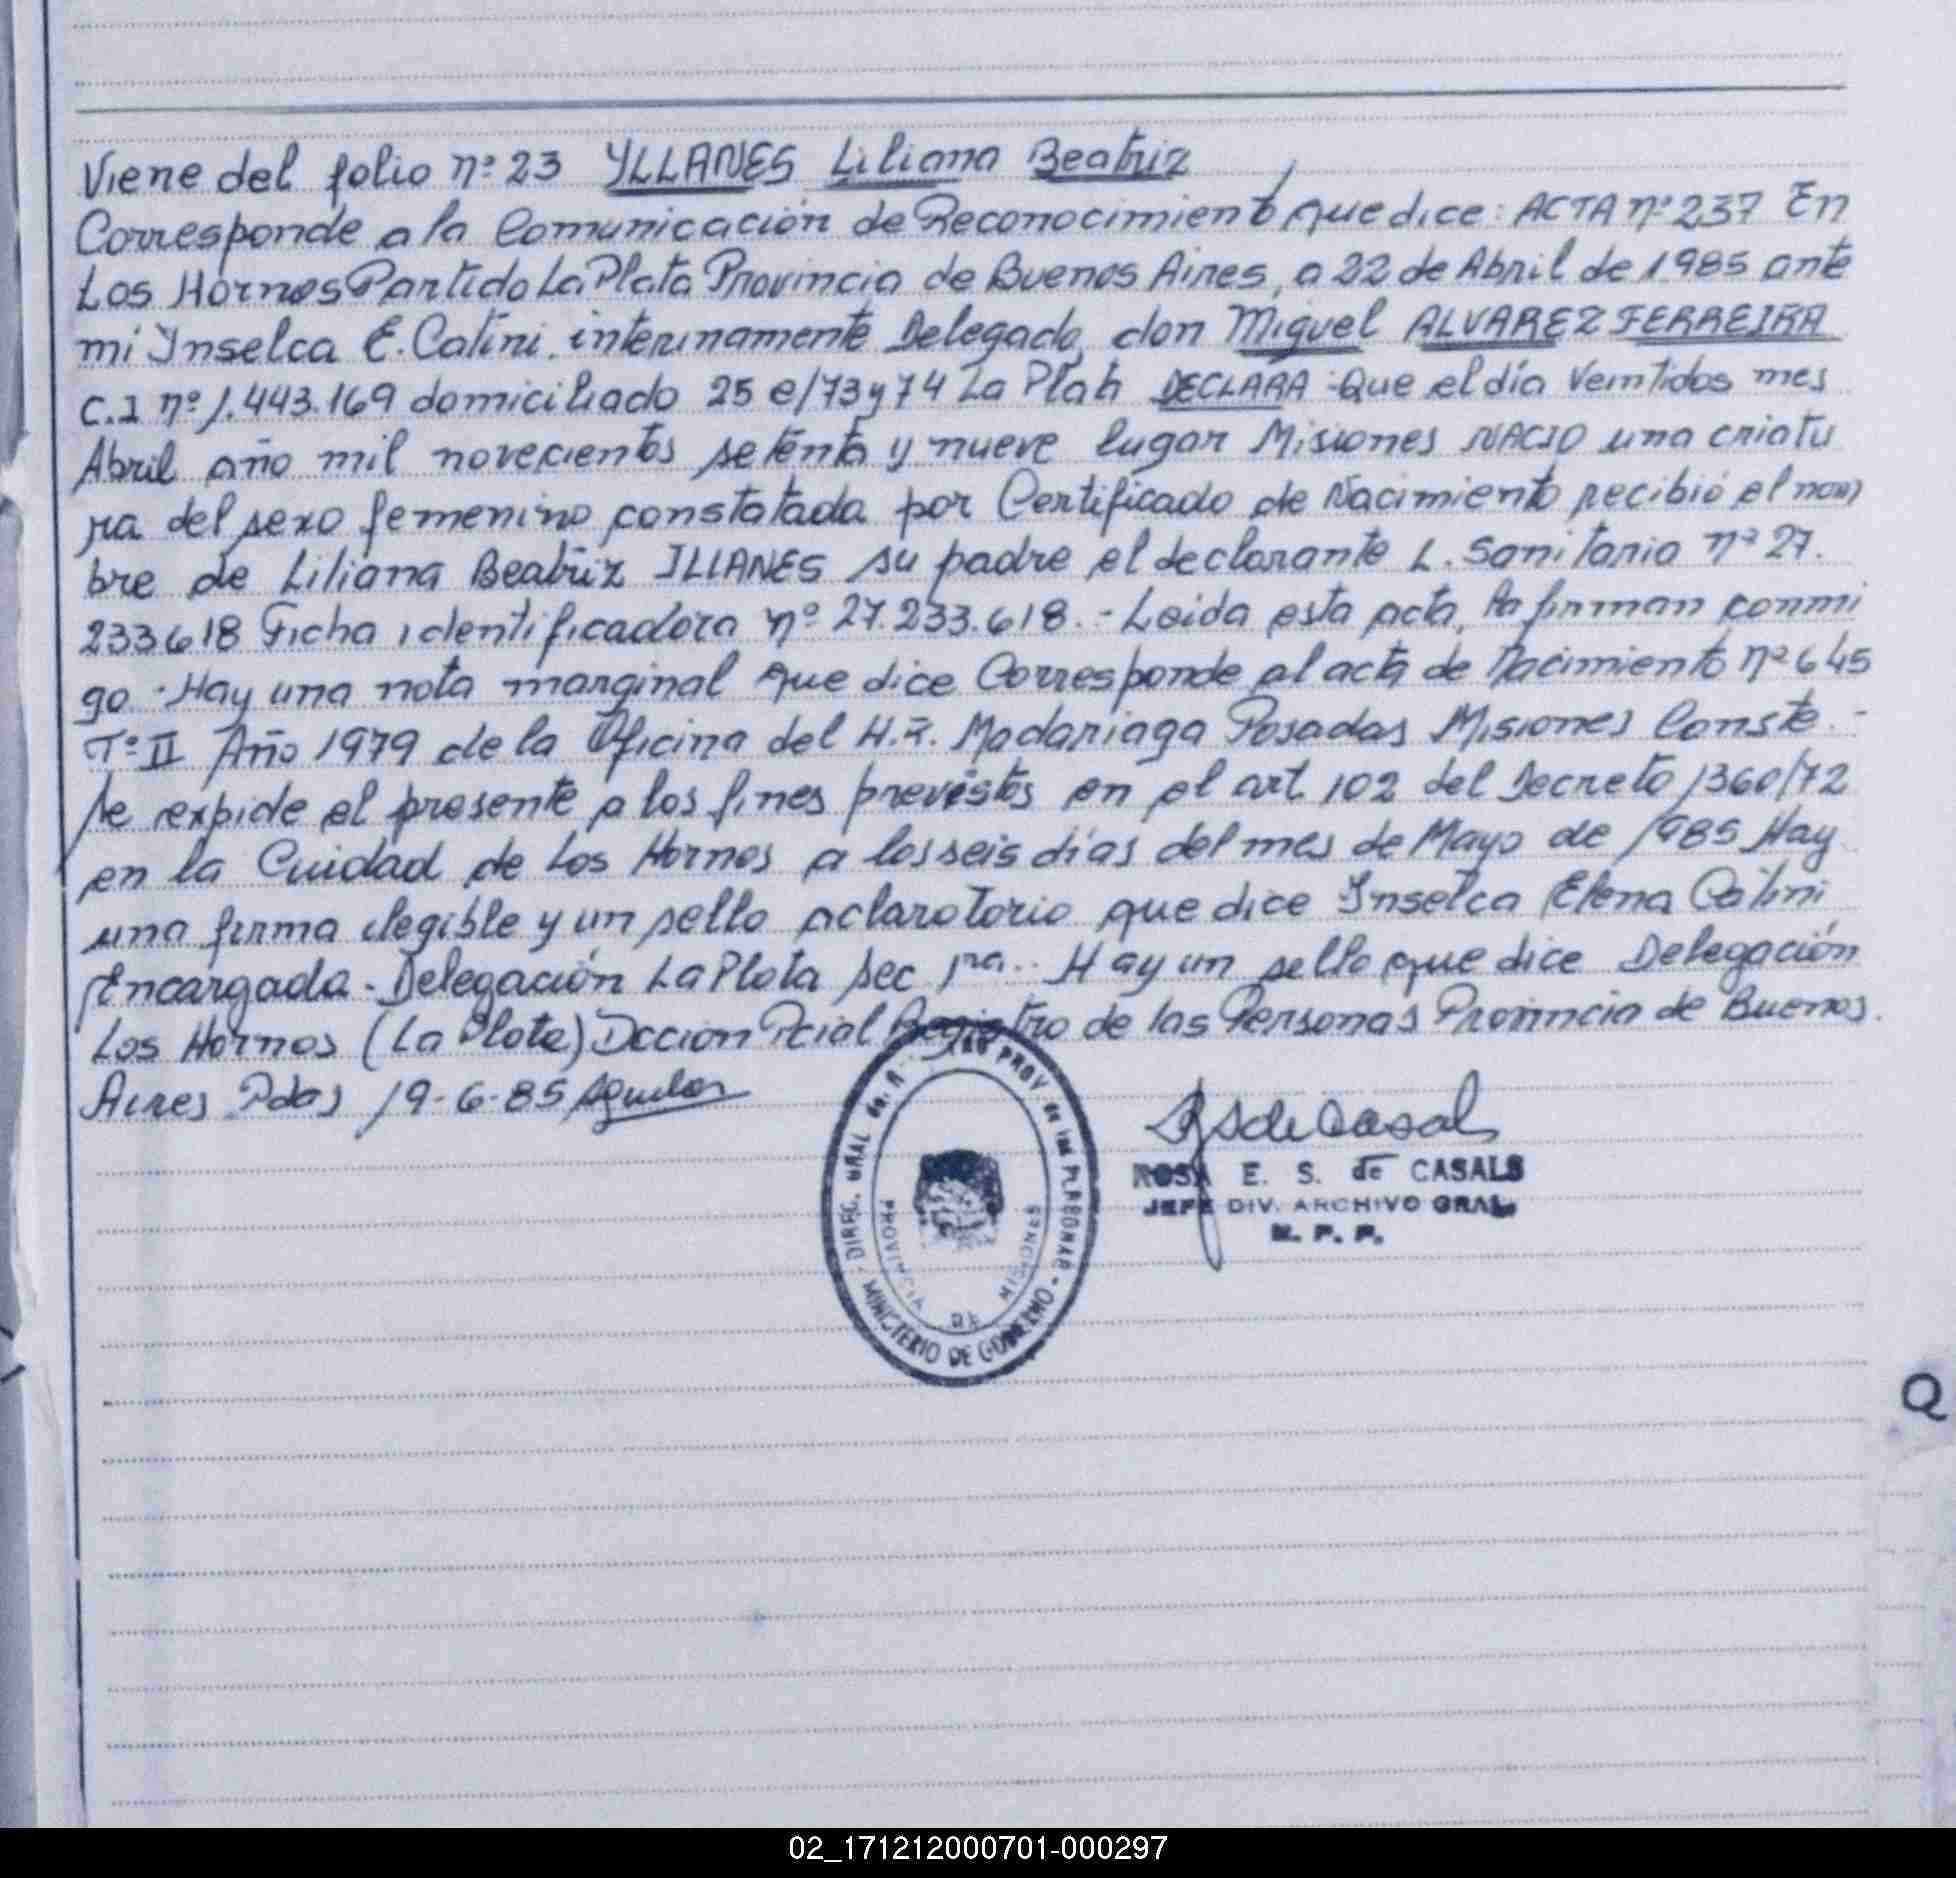 Viene del folio nº 23 YLLANES Liliana Beatriz
Corresponde a la Comunicación de Reconocimiento que dice: ACTA nº 237 En
Los Hornos Partido La Plata Provincia de Buenos Aires, a 22 de Abril de 1985 ante
mi Ynselca E. Catini. interinamente Delegada, don Miguel ALVAREZ FERREIRA
C.I nº 1.443.169 domiciliado 25 e/73 y 74 La Plata DECLARA: Que el día Veintidos mes
Abril año mil novecientos setenta y nueve lugar Misiones NACIO una criatu
ra del sexo femenino constatada por Certificado de Nacimiento recibió el nom
bre de Liliana Beatriz ILLANES su padre el declarante L. Sanitaria nº 27.
233618 Ficha identificadora nº 27.233.618.- Leida esta acta, la firman conmi
go.- Hay una nota marginal que dice Corresponde al acta de Nacimiento nº 645
Tº II Año 1979 de la Oficina del H.R. Madariaga Posadas Misiones Conste.-
Se expide el presente a los fines previstos en el art 102 del Decreto 1360/72
en la Cuidad de Los Hornos a los seis días del mes de Mayo de 1985 Hay
una firma ilegible y un sello aclaratorio que dice Ynselca Elena Catini
Encargada - Delegación La Plata Sec 1ra.. Hay un sello que dice Delegación
Los Hornos (La Plata) Dccion Pcial Registro de las Personas Provincia de Buenos
Aires Pdas 19-6-85 Aguilar
DIREC. GRAL de. R PROV de las PERSONAS
MINISTERIO DE GOBIERNO
PROVINCIA DE MISIONES
RS de Casals
ROSA E. S. de CASALS
JEFE DIV. ARCHIVO GRAL.
R. P. P.
Q
02_171212000701-000297